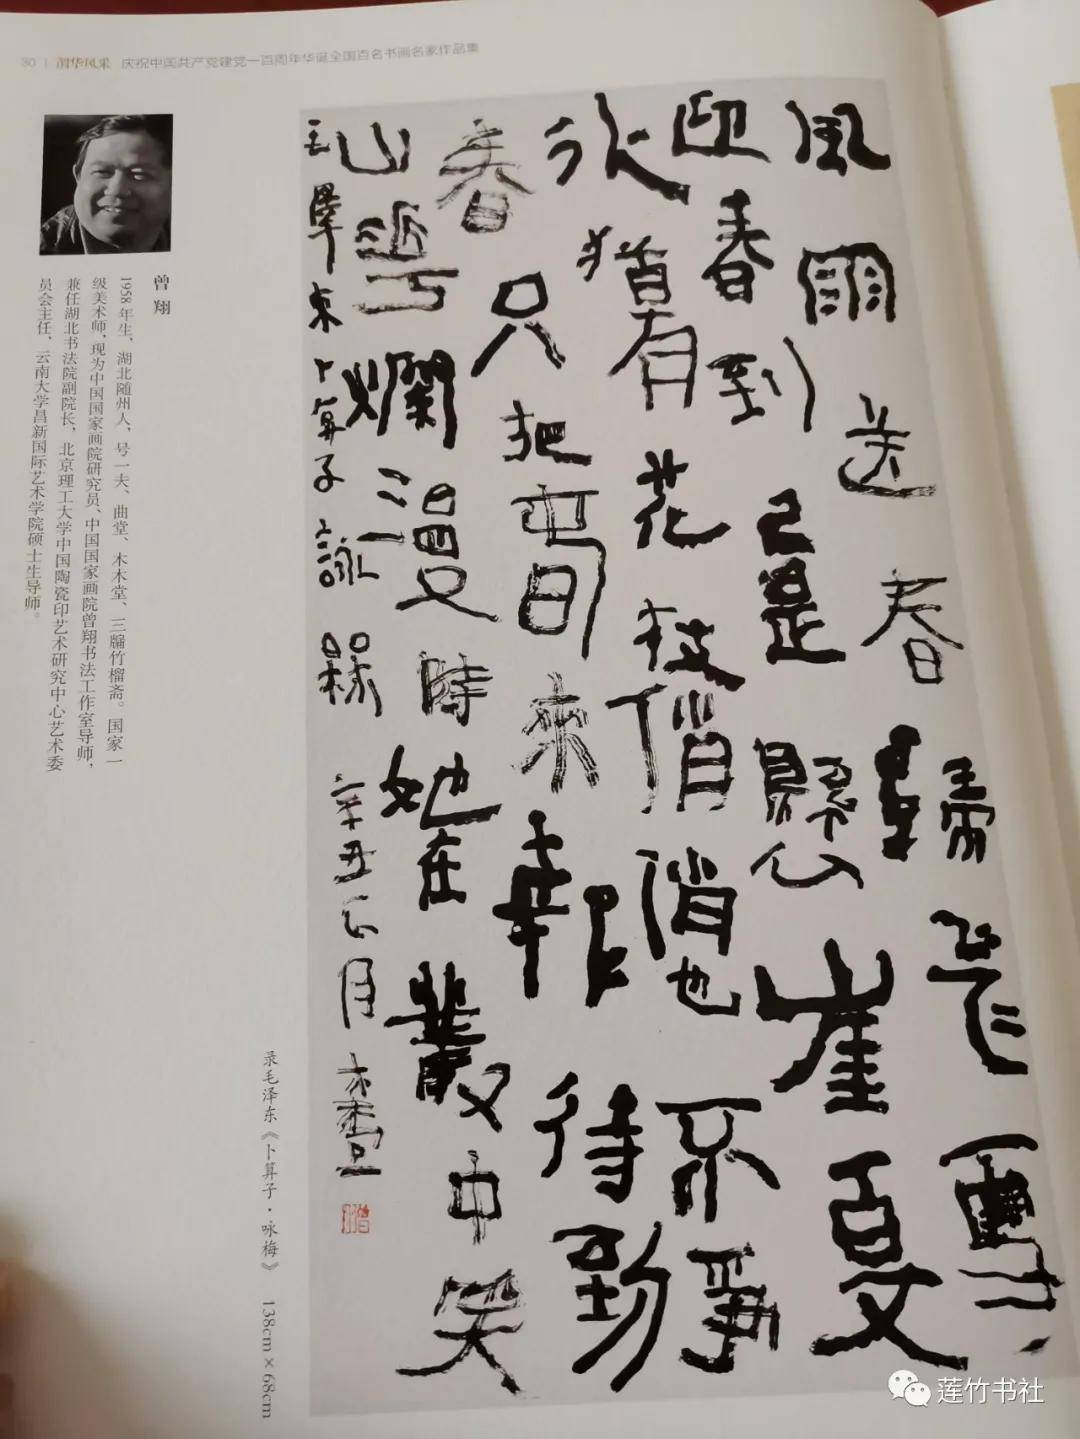 30 | 渭华风采 庆祝中国共产党建党一百周年华诞全国百名书画名家作品集
風雨送春歸飛雪
迎春到已是懸崖百丈
冰猶有花枝俏俏也不爭
春只把春來報待到
山花爛漫時她在叢中笑
毛澤東卜算子詠梅 辛丑 月
曾翔
1958年生，湖北随州人，号一夫、曲堂、木木堂、三牖竹榴斋。国家一
级美术师，现为中国国家画院研究员、中国国家画院曾翔书法工作室导师，
兼任湖北书法院副院长，北京理工大学中国陶瓷印艺术研究中心艺术委
员会主任，云南大学昌新国际艺术学院硕士生导师。
录毛泽东《卜算子·咏梅》 138cm×68cm
莲竹书社